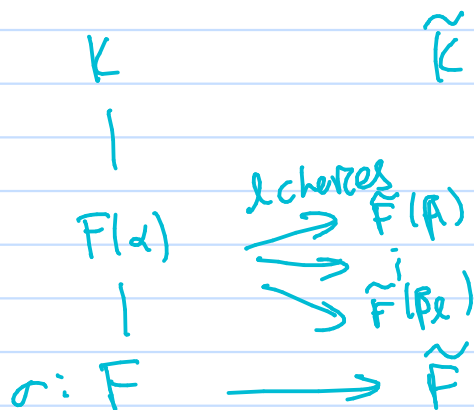 K K̃
l choices
F(α) F̃(β₁)
⋮
F̃(βℓ)
σ: F ⟶ F̃